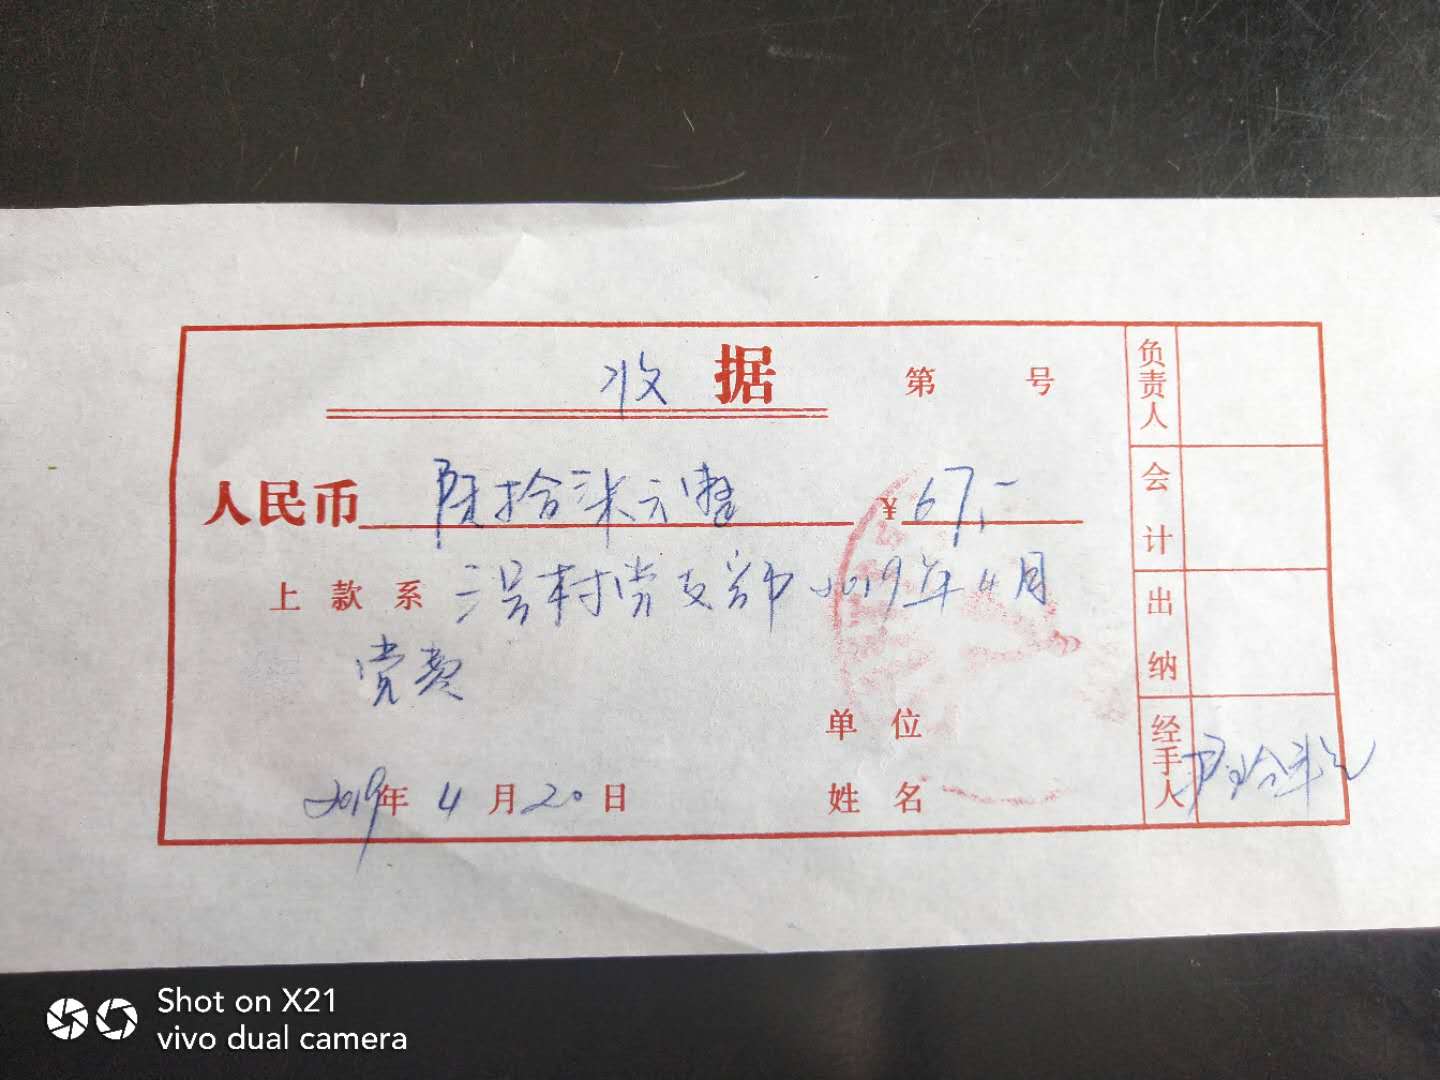 收据 第 号
人民币 陆拾柒元整 ¥67.-
上款系 三号村党支部2019年4月
党费
单位
2019年4月20日 姓名
负责人
会计
出纳
经手人
Shot on X21
vivo dual camera